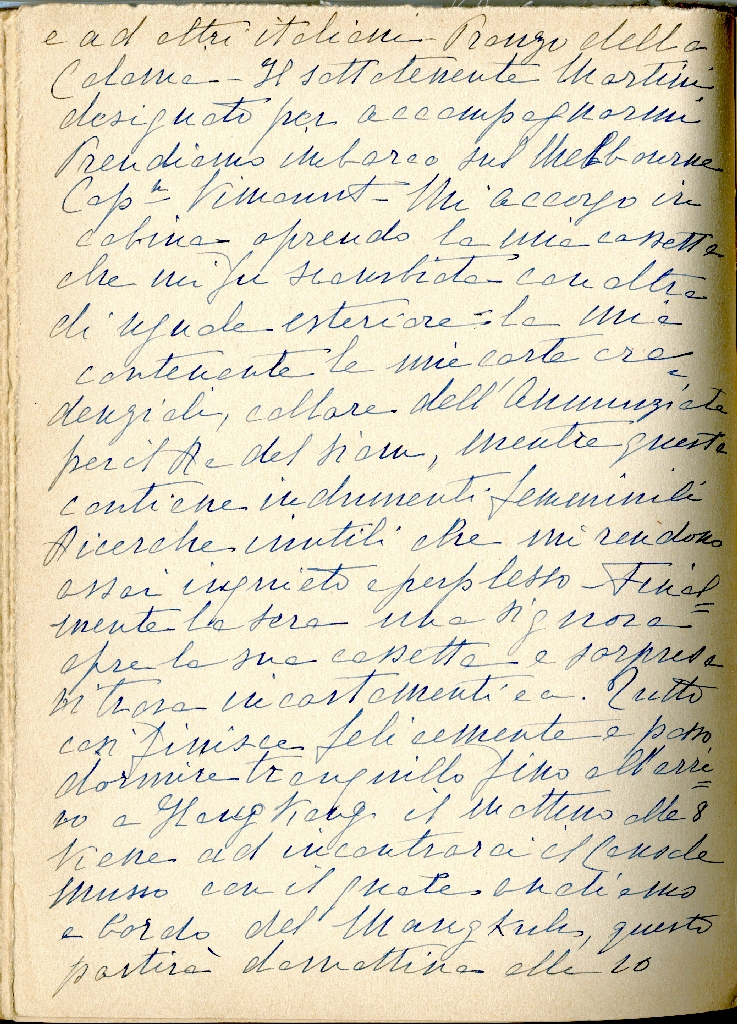 e ad altri italiani - Pranzo della
Colonia - Il sottotenente Martini
designato per accompagnarmi
Prendiamo imbarco sul Melbourne
Cap.n Vimount - Mi accorgo in
cabina aprendo la mia cassetta
che mi fu scambiata con altra
di uguale esteriore = la mia
contenente le mie carte cre=
denziali, collare dell'Annunziata
per il Re del Siam, mentre questa
contiene indumenti femminili
Ricerche inutili che mi rendono
assai inquieto e perplesso - Final=
mente la sera una signora
apre la sua cassetta e sorpresa
vi trova incartamenti ec a. Tutto
così finisce felicemente e posso
dormire tranquillo fino all'arri=
vo a Hong Kong il mattino alle 8
Viene ad incontrarci il Console
Musso con il quale andiamo
a bordo del, questo
partirà domattina alle 10